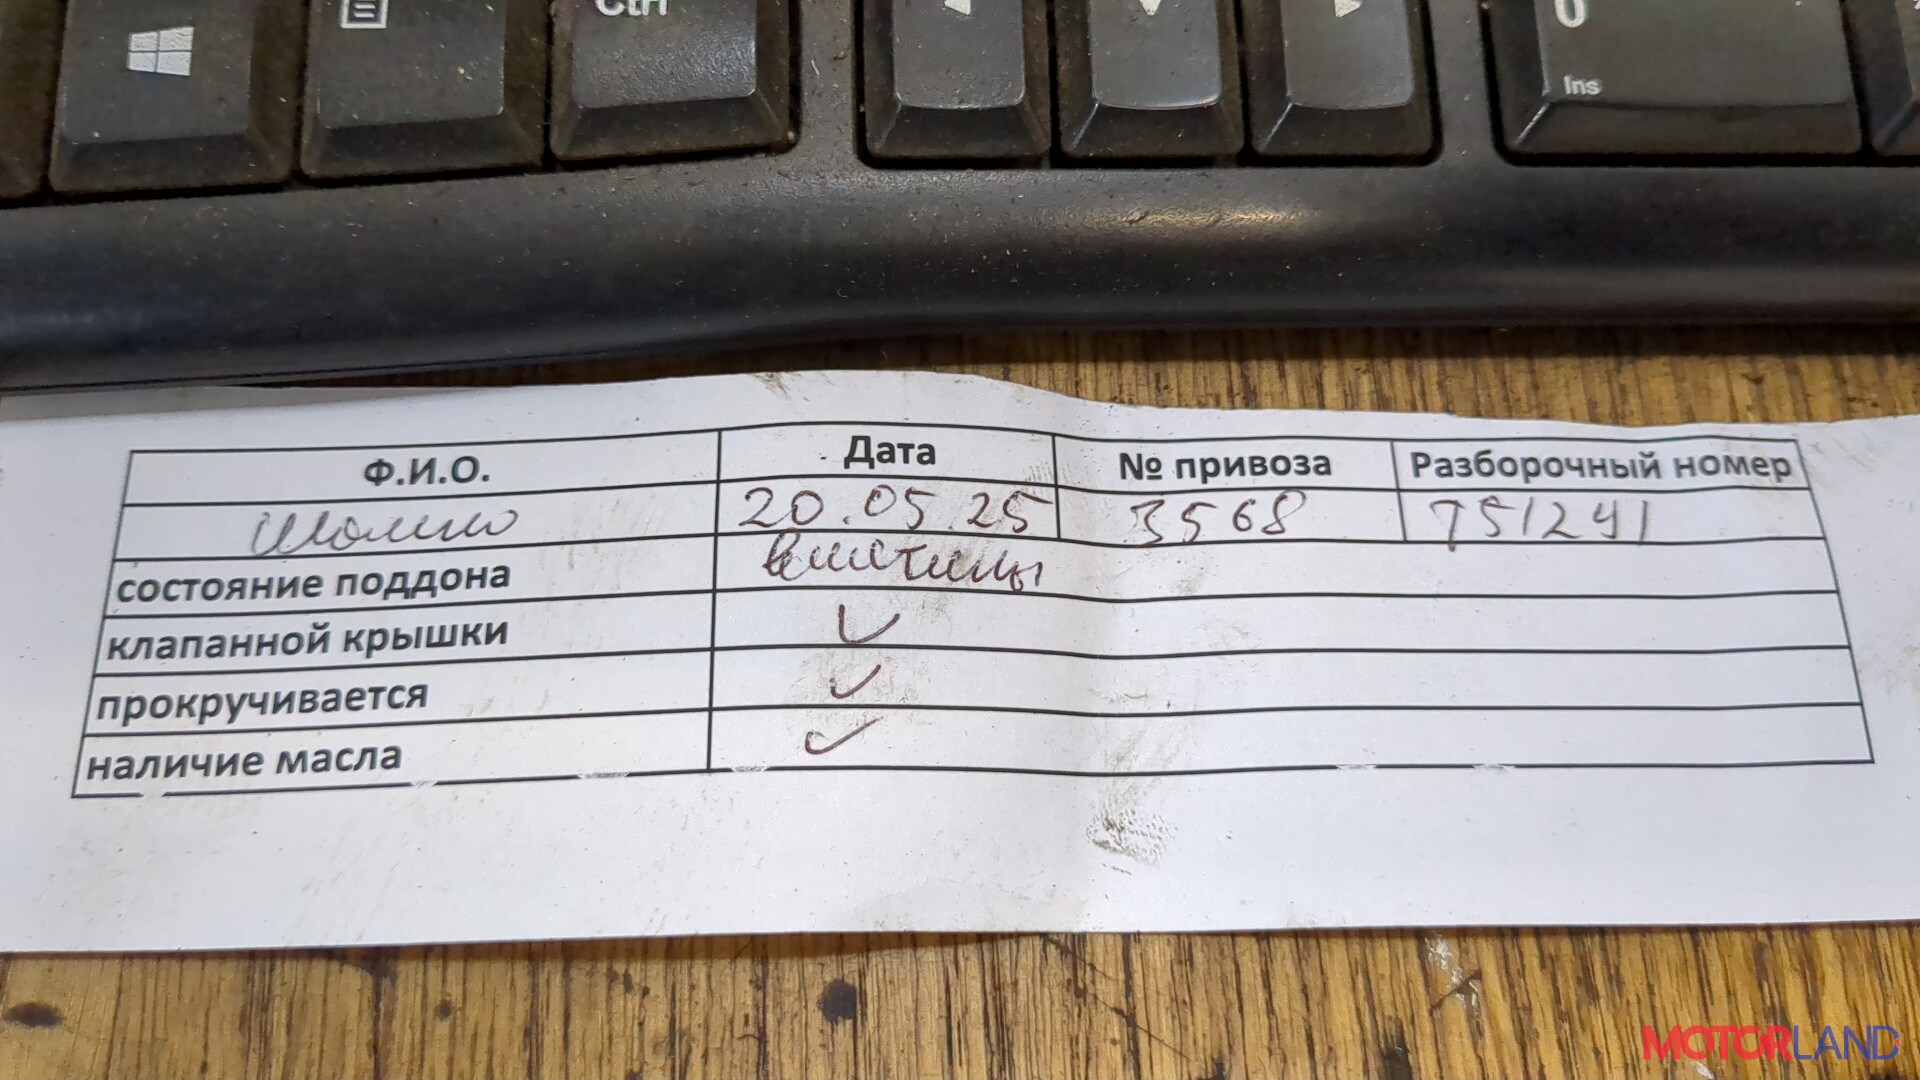 Ctrl
0
Ins
Ф.И.О. Дата № привоза Разборочный номер
20.05.25 3568 751241
состояние поддона вмятины
клапанной крышки ✓
прокручивается ✓
наличие масла ✓
MOTORLAND